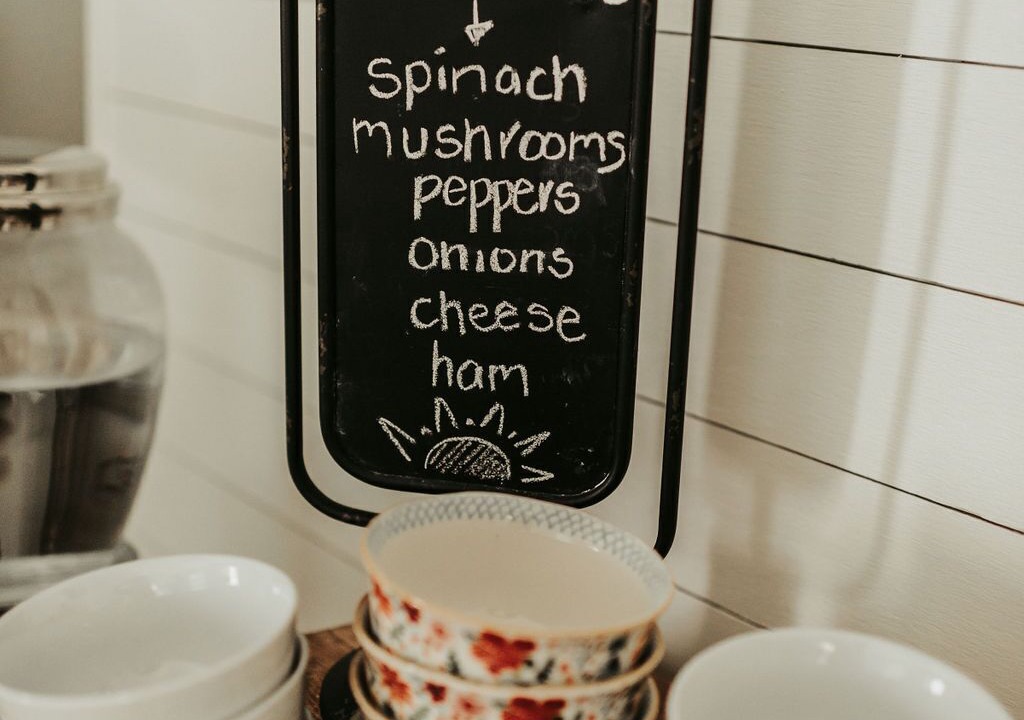 spinach
mushrooms
peppers
onions
cheese
ham